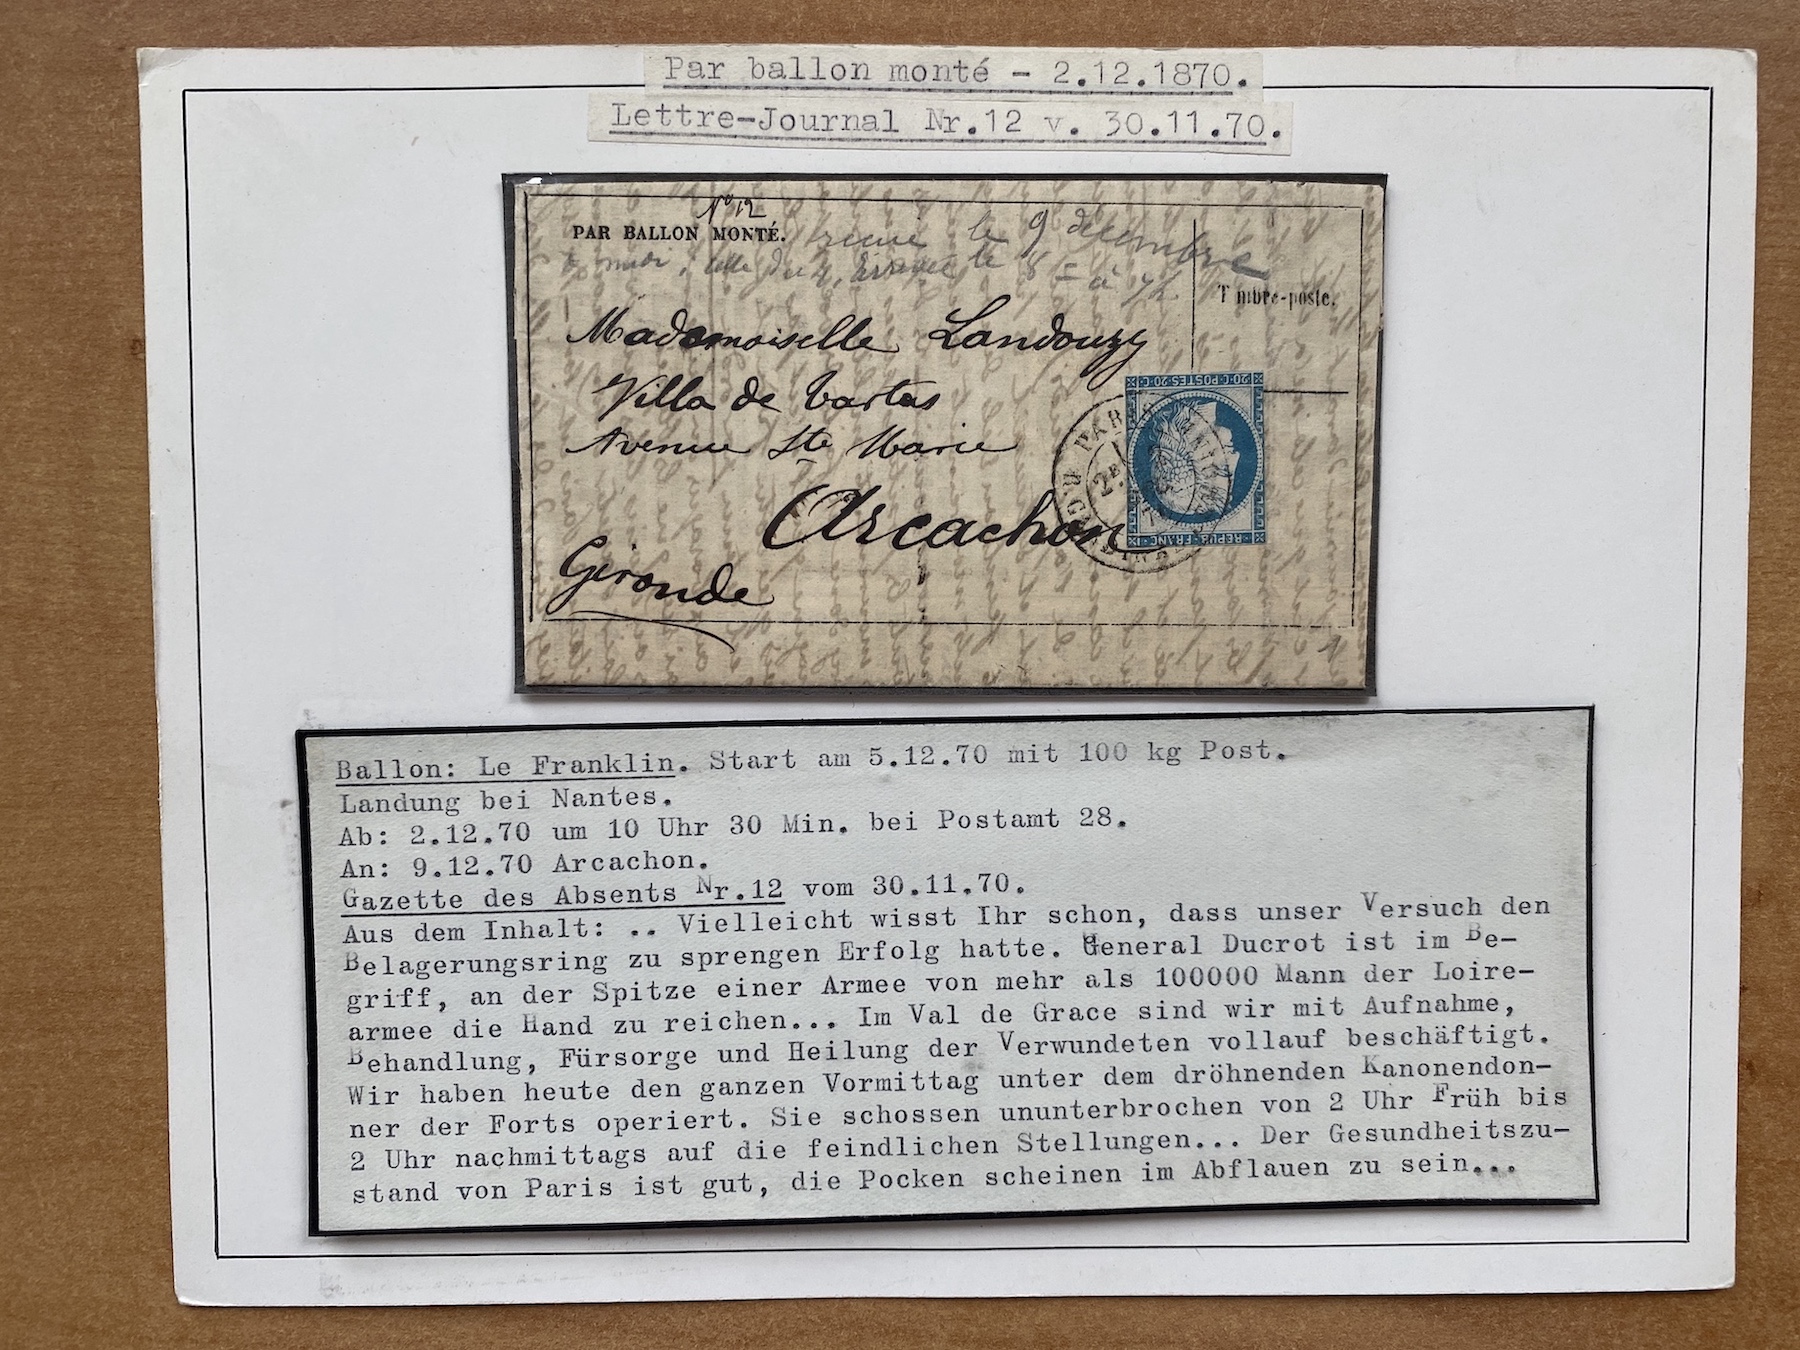 Par ballon monté - 2.12.1870.
Lettre-Journal Nr.12 v. 30.11.70.
No 12
PAR BALLON MONTÉ.
le 9 décembre
le 8
Timbre-poste.
Mademoiselle Landouzy
Villa de Tartas
Avenue Ste Marie
Arcachon
Gironde
20·C·POSTES·20·C
REPUB·FRANC
PARIS
2E
Ballon: Le Franklin. Start am 5.12.70 mit 100 kg Post.
Landung bei Nantes.
Ab: 2.12.70 um 10 Uhr 30 Min. bei Postamt 28.
An: 9.12.70 Arcachon.
Gazette des Absents Nr.12 vom 30.11.70.
Aus dem Inhalt: .. Vielleicht wisst Ihr schon, dass unser Versuch den
Belagerungsring zu sprengen Erfolg hatte. General Ducrot ist im Be-
griff, an der Spitze einer Armee von mehr als 100000 Mann der Loire-
armee die Hand zu reichen... Im Val de Grace sind wir mit Aufnahme,
Behandlung, Fürsorge und Heilung der Verwundeten vollauf beschäftigt.
Wir haben heute den ganzen Vormittag unter dem dröhnenden Kanonendon-
ner der Forts operiert. Sie schossen ununterbrochen von 2 Uhr Früh bis
2 Uhr nachmittags auf die feindlichen Stellungen... Der Gesundheitszu-
stand von Paris ist gut, die Pocken scheinen im Abflauen zu sein...